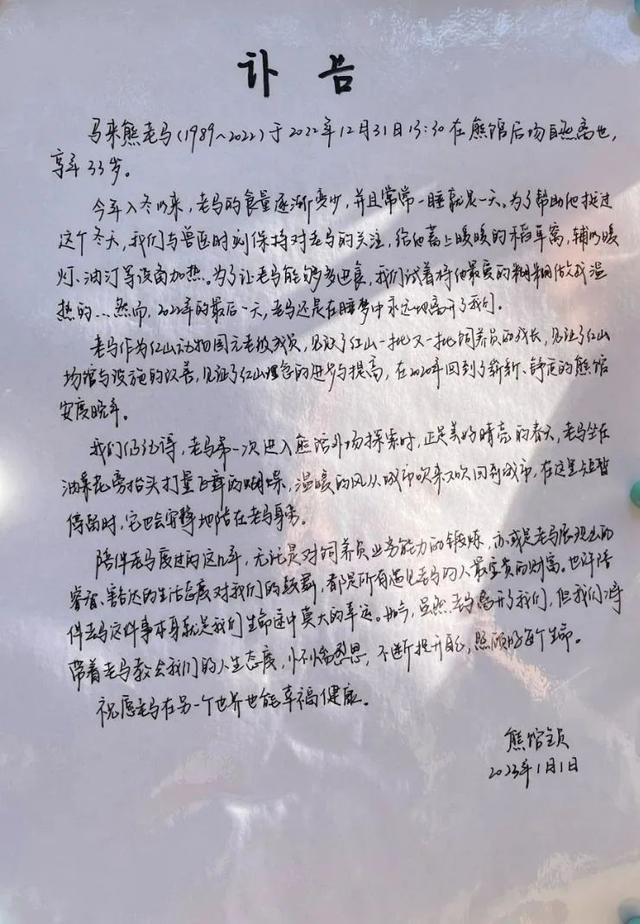 讣 告
马来熊老马(1989~2022)于2022年12月31日13:30在熊馆后场自然离世,
享年33岁。
今年入冬以来,老马的食量逐渐变少,并且常常一睡就是一天。为了帮助他挺过
这个冬天,我们与兽医时刻保持对老马的关注,给他卷上暖暖的稻草窝,辅以暖
灯、油汀等设备加热。为了让老马能够多进食,我们试着将他最爱的糊糊做成温
热的...然而,2022年的最后一天,老马还是在睡梦中永远地离开了我们。
老马作为红山动物园元老级成员,见证了红山一批又一批饲养员的成长,见证了红山
场馆与设施的改善,见证了红山理念的进步与提高,在2020年回到了崭新、舒适的熊馆
安度晚年。
我们仍记得,老马第一次进入熊馆外场探索时,正是美好晴亮的春天,老马坐在
油菜花旁抬头打量飞舞的蝴蝶,温暖的风从城市吹来又吹回到城市,在这里短暂
停留时,它也会安静地陪在老马身旁。
陪伴老马度过的这几年,无论是对饲养员业务能力的锻炼,亦或是老马展现出的
睿智、豁达的生活态度对我们的鼓舞,都是所有遇见老马的人最宝贵的财富。也许陪
伴老马这件事本身就是我们生命途中莫大的幸运。如今,虽然老马离开了我们,但我们将
带着老马教会我们的人生态度,心怀感恩,不断提升自己,照顾好每个生命。
祝愿老马在另一个世界也能幸福健康。
熊馆全员
2023年1月1日